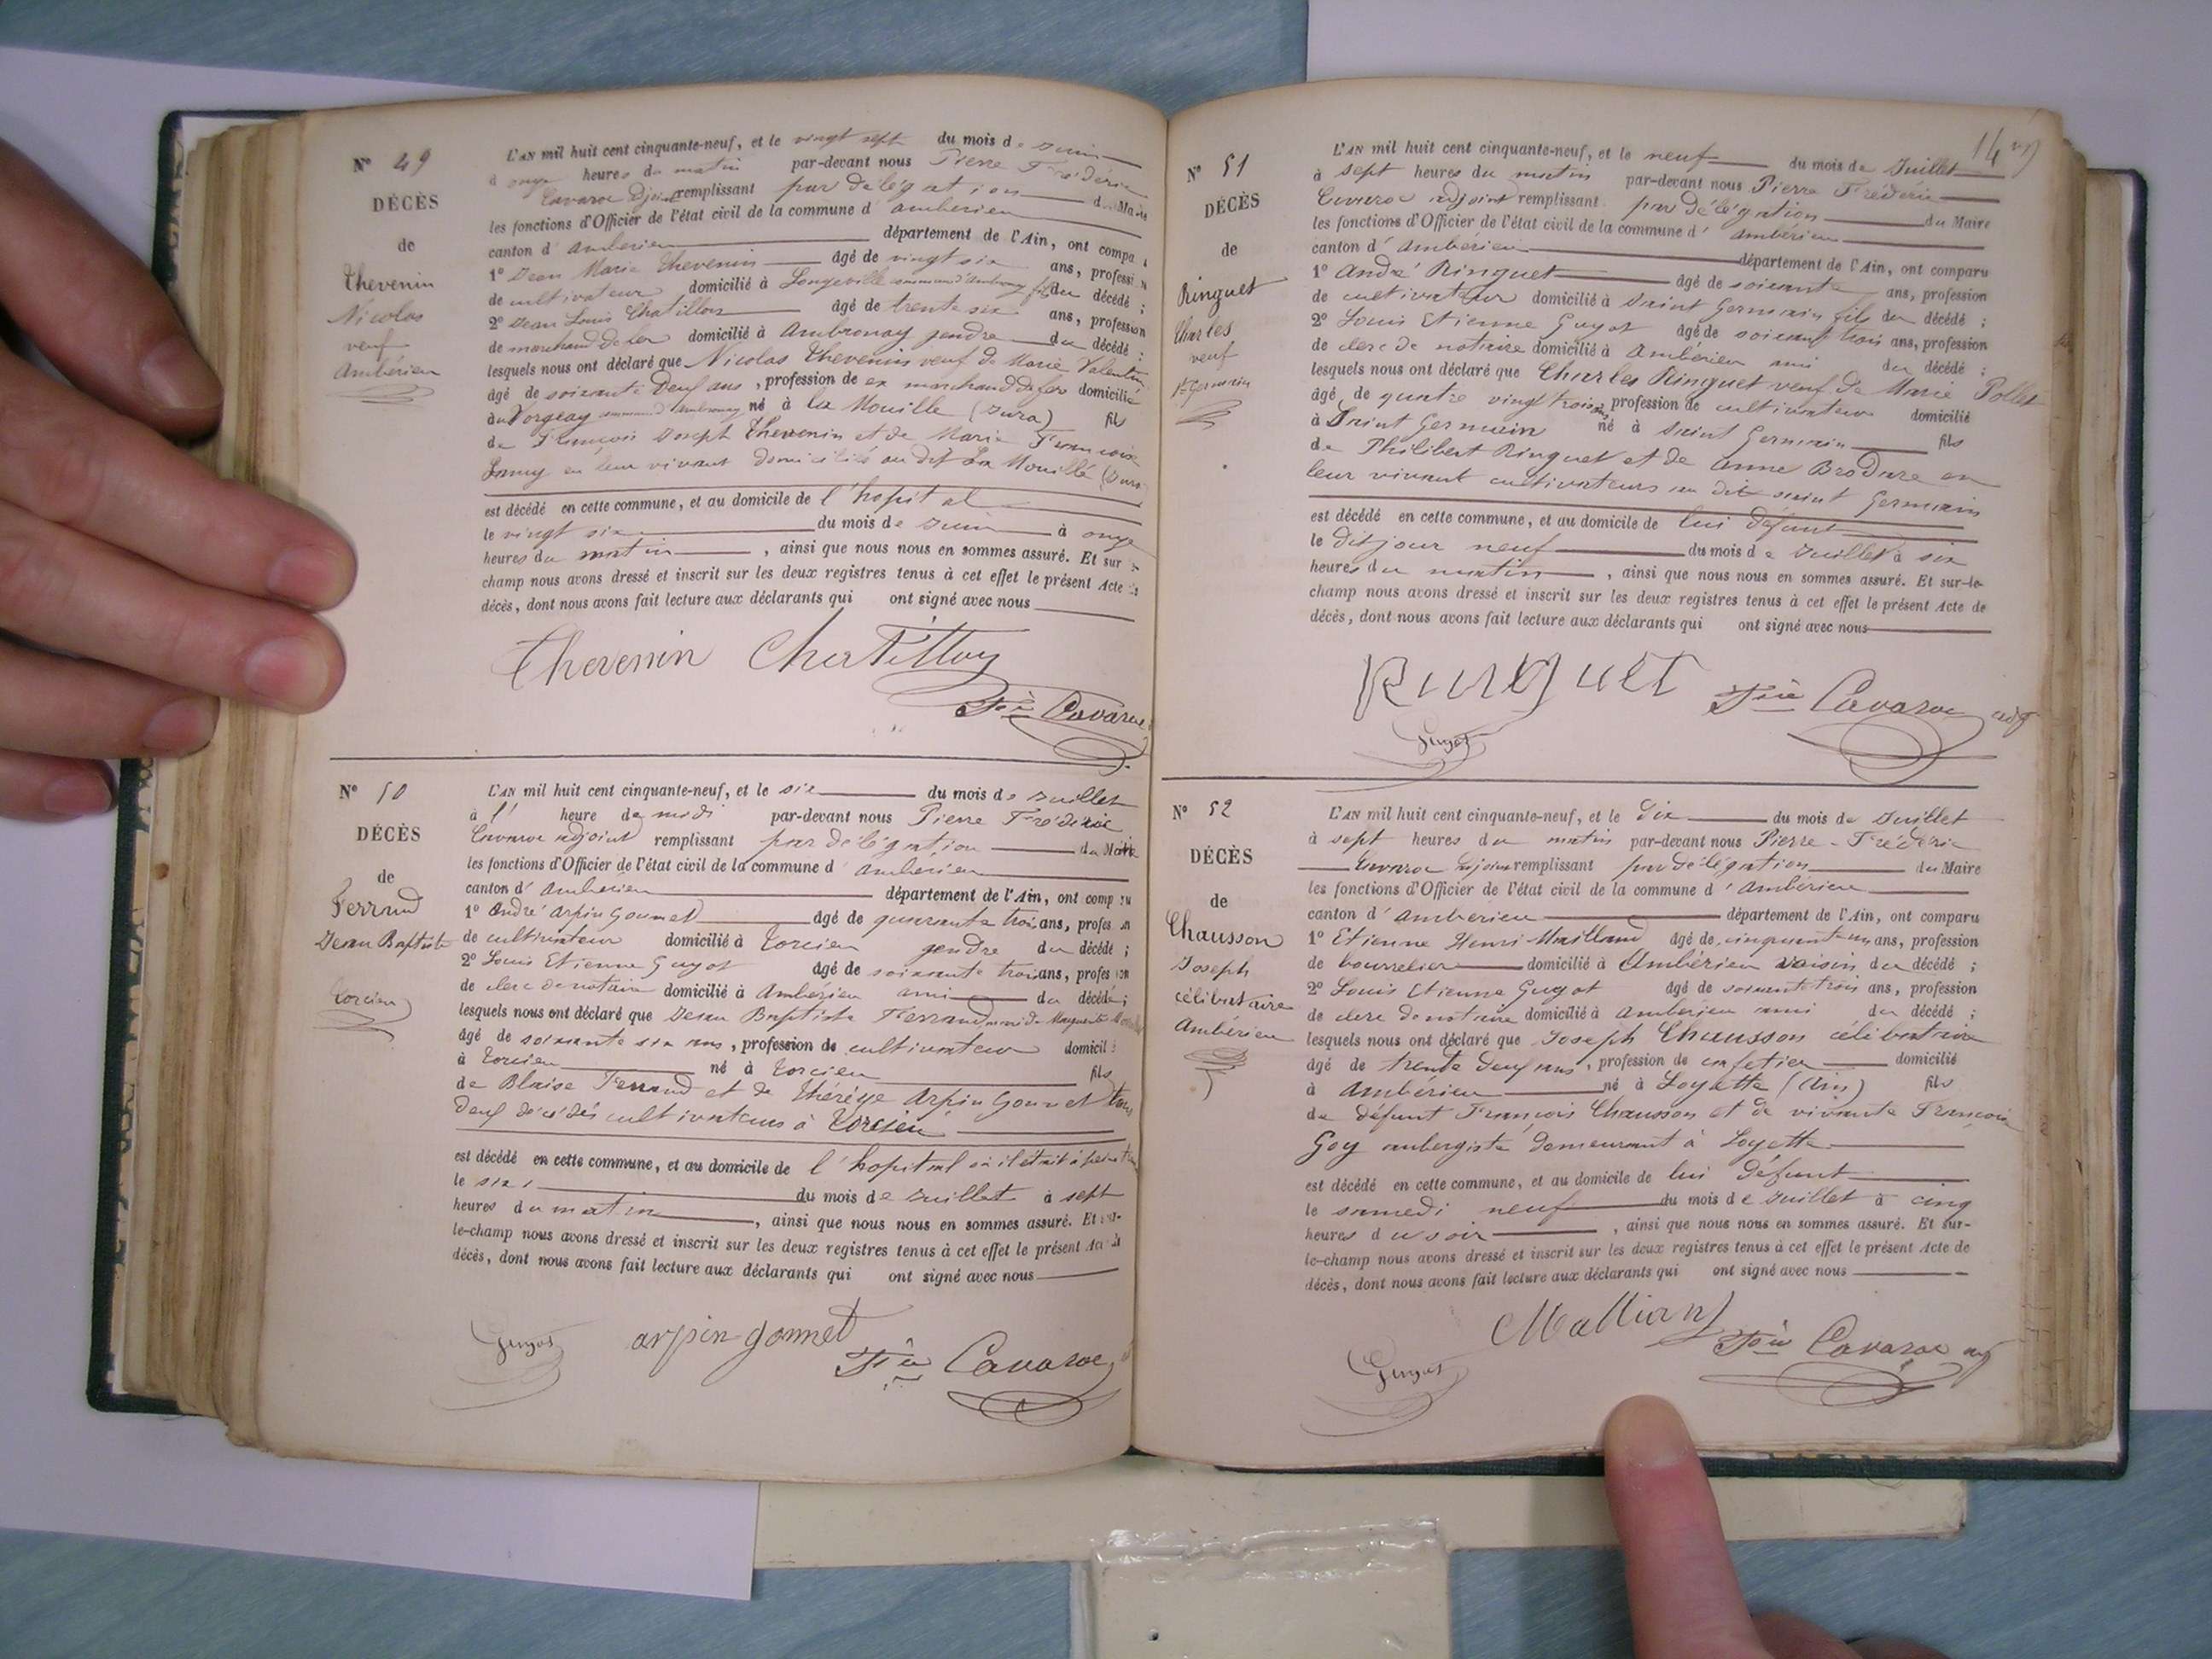 N° 49
DÉCÈS
de
Thevenin
Nicolas
veuf
Ambérieu
L'AN mil huit cent cinquante-neuf, et le vingt sept du mois de Juin
à onze heures du matin par-devant nous Pierre Frédéric
Cavaroc adjoint remplissant par délégation du Maire
les fonctions d'Officier de l'état civil de la commune d'Ambérieu
canton d'Ambérieu département de l'Ain, ont compa
1° Jean Marie Thevenin âgé de vingt six ans, profession
de cultivateur domicilié à Longeville commune d'Ambronay fils du décédé ;
2° Jean Louis Chatillon âgé de trente six ans, profession
de marchand de fer domicilié à Ambronay gendre du décédé ;
lesquels nous ont déclaré que Nicolas Thevenin veuf de Marie Valentin
âgé de soixante deux ans, profession de ex marchand de fer domicilié
au Vorgeay commune d'Ambronay né à la Mouille (Jura) fils
de François Joseph Thevenin et de Marie Françoise
Lamy en leur vivant domiciliés au dit La Mouille (Jura
est décédé en cette commune, et au domicile de l'hopital
le vingt six du mois de Juin à onze
heures du matin, ainsi que nous nous en sommes assuré. Et sur
champ nous avons dressé et inscrit sur les deux registres tenus à cet effet le présent Acte de
décès, dont nous avons fait lecture aux déclarants qui ont signé avec nous
Thevenin Chatillon
Fric Cavaroc
N° 50
DÉCÈS
de
Ferrand
Jean Baptiste
Torcieu
L'AN mil huit cent cinquante-neuf, et le six du mois de Juillet
à l' heure de midi par-devant nous Pierre Frédéric
Cavaroc adjoint remplissant par délégation du Maire
les fonctions d'Officier de l'état civil de la commune d'Ambérieu
canton d'Ambérieu département de l'Ain, ont comparu
1° André Arpin Gonnet âgé de quarante trois ans, profession
de cultivateur domicilié à Torcieu gendre du décédé ;
2° Louis Etienne Guyot âgé de soixante trois ans, profession
de clerc de notaire domicilié à Ambérieu ami du décédé ;
lesquels nous ont déclaré que Jean Baptiste Ferrand mari de Marguerite
âgé de soixante six ans, profession de cultivateur domicilié
à Torcieu né à Torcieu fils
de Blaise Ferrand et de Thérèze Arpin Gonnet tous
deux décédés cultivateurs à Torcieu
est décédé en cette commune, et au domicile de l'hopital où il était à
le six du mois de Juillet à sept
heures du matin, ainsi que nous nous en sommes assuré. Et sur-
le-champ nous avons dressé et inscrit sur les deux registres tenus à cet effet le présent Acte de
décès, dont nous avons fait lecture aux déclarants qui ont signé avec nous
Guyot arpin gonnet
Fric Cavaroc
N° 51
DÉCÈS
de
Ringuet
Charles
veuf
St Germain
L'AN mil huit cent cinquante-neuf, et le neuf du mois de Juillet
à sept heures du matin par-devant nous Pierre Frédéric
Cavaroc adjoint remplissant par délégation du Maire
les fonctions d'Officier de l'état civil de la commune d'Ambérieu
canton d'Ambérieu département de l'Ain, ont comparu
1° André Ringuet âgé de soixante ans, profession
de cultivateur domicilié à Saint Germain fils du décédé ;
2° Louis Etienne Guyot âgé de soixante trois ans, profession
de clerc de notaire domicilié à Ambérieu ami du décédé ;
lesquels nous ont déclaré que Charles Ringuet veuf de Marie Pollet
âgé de quatre vingt trois ans, profession de cultivateur domicilié
à Saint Germain né à Saint Germain fils
de Philibert Ringuet et de Anne Brodure en
leur vivant cultivateurs au dit saint Germain
est décédé en cette commune, et au domicile de lui défunt
le dit jour neuf du mois de Juillet à six
heures du matin, ainsi que nous nous en sommes assuré. Et sur-le-
champ nous avons dressé et inscrit sur les deux registres tenus à cet effet le présent Acte de
décès, dont nous avons fait lecture aux déclarants qui ont signé avec nous
Ringuet Fric Cavaroc adj
Guyot
N° 52
DÉCÈS
de
Chausson
Joseph
célibataire
Ambérieu
L'AN mil huit cent cinquante-neuf, et le dix du mois de Juillet
à sept heures du matin par-devant nous Pierre-Frédéric
Cavaroc adjoint remplissant par délégation du Maire
les fonctions d'Officier de l'état civil de la commune d'Ambérieu
canton d'Ambérieu département de l'Ain, ont comparu
1° Etienne Henri Mailland âgé de cinquante un ans, profession
de bourrelier domicilié à Ambérieu voisin du décédé ;
2° Louis Etienne Guyot âgé de soixante trois ans, profession
de clerc de notaire domicilié à Ambérieu ami du décédé ;
lesquels nous ont déclaré que Joseph Chausson célibataire
âgé de trente deux ans, profession de cafetier domicilié
à Ambérieu né à Loyette (Ain) fils
de défunt François Chausson et de vivante Françoise
Goy aubergiste demeurant à Loyette
est décédé en cette commune, et au domicile de lui défunt
le samedi neuf du mois de Juillet à cinq
heures du soir, ainsi que nous nous en sommes assuré. Et sur-
le-champ nous avons dressé et inscrit sur les deux registres tenus à cet effet le présent Acte de
décès, dont nous avons fait lecture aux déclarants qui ont signé avec nous
Guyot Fric Cavaroc adj